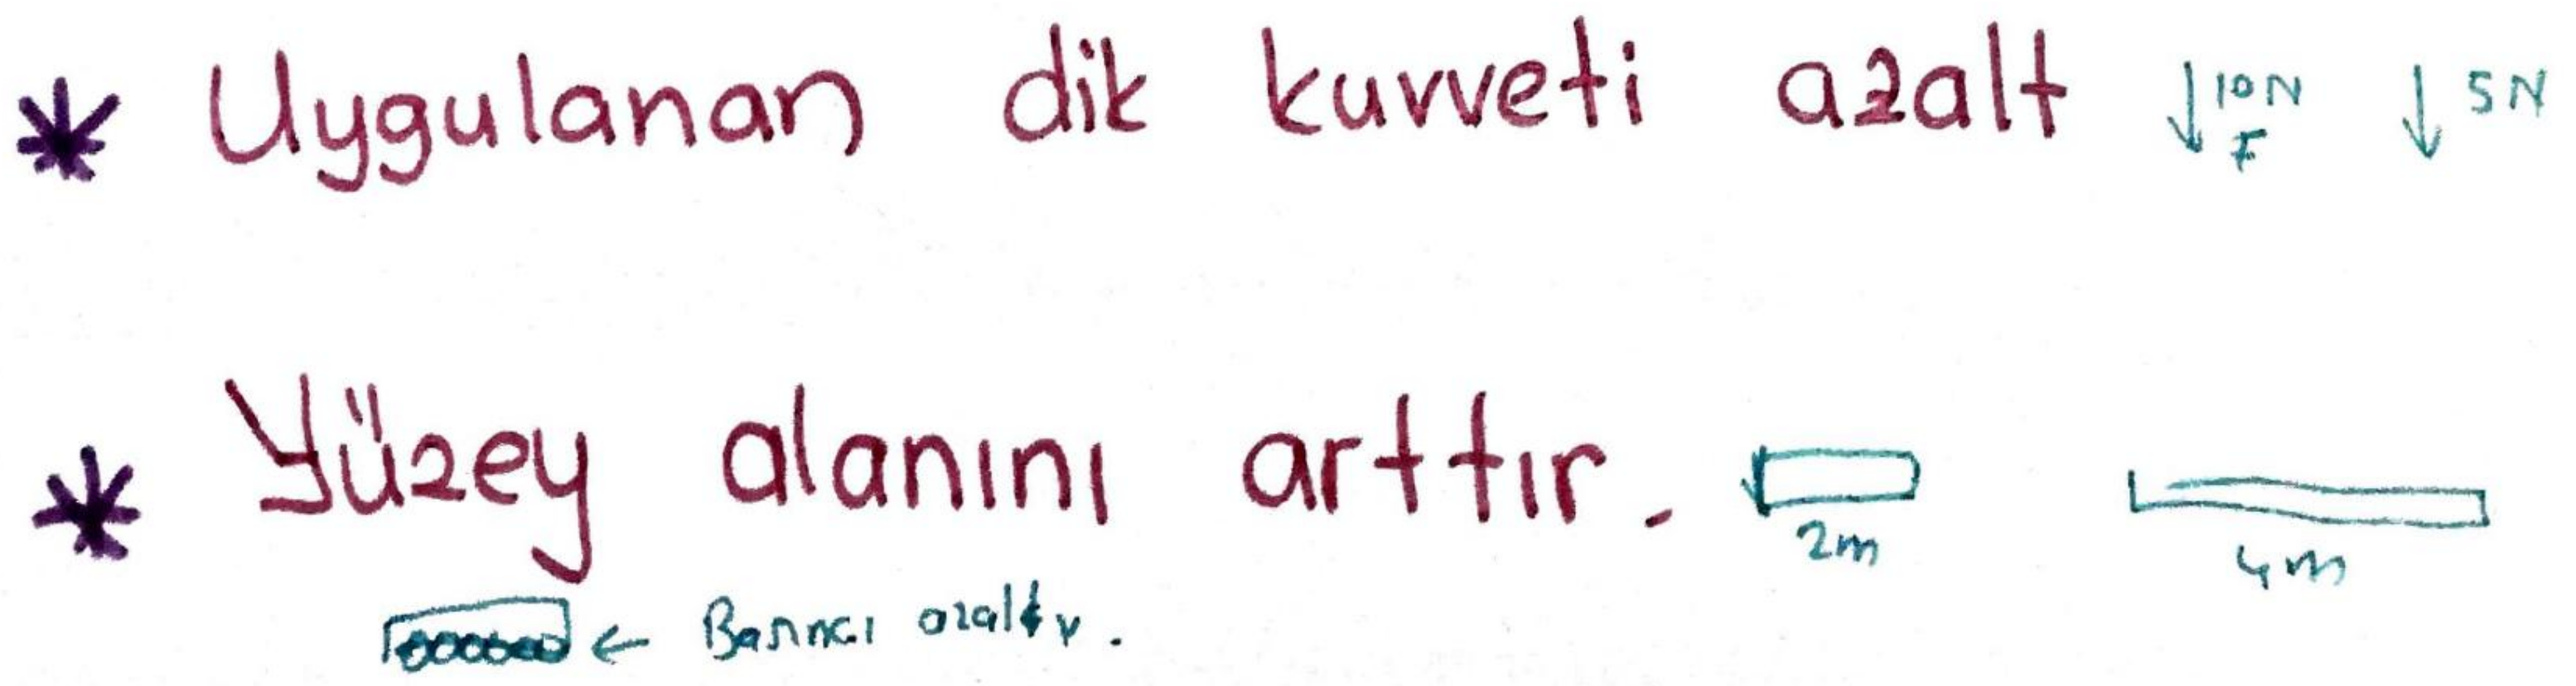 * Uygulanan dik kuvveti azalt ↓10N F ↓5N
* Yüzey alanını arttır. 2m 4m
← Basıncı azaltır.